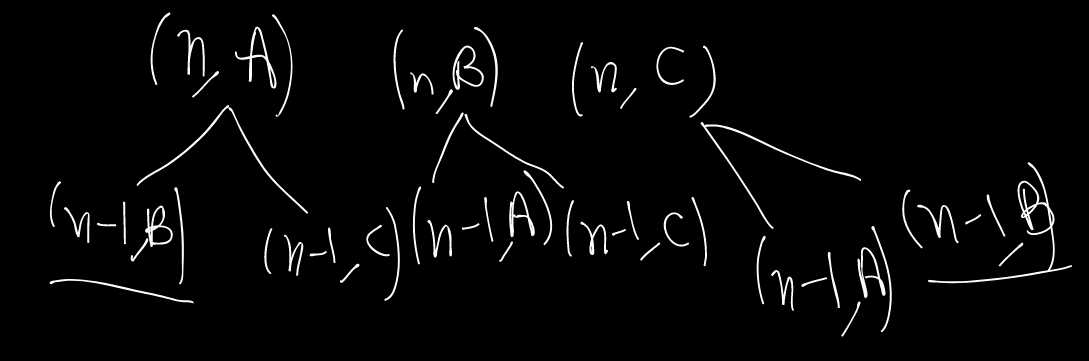 (n, A) (n, B) (n, C)
(n-1, B) (n-1, C) (n-1, A) (n-1, C) (n-1, A) (n-1, B)